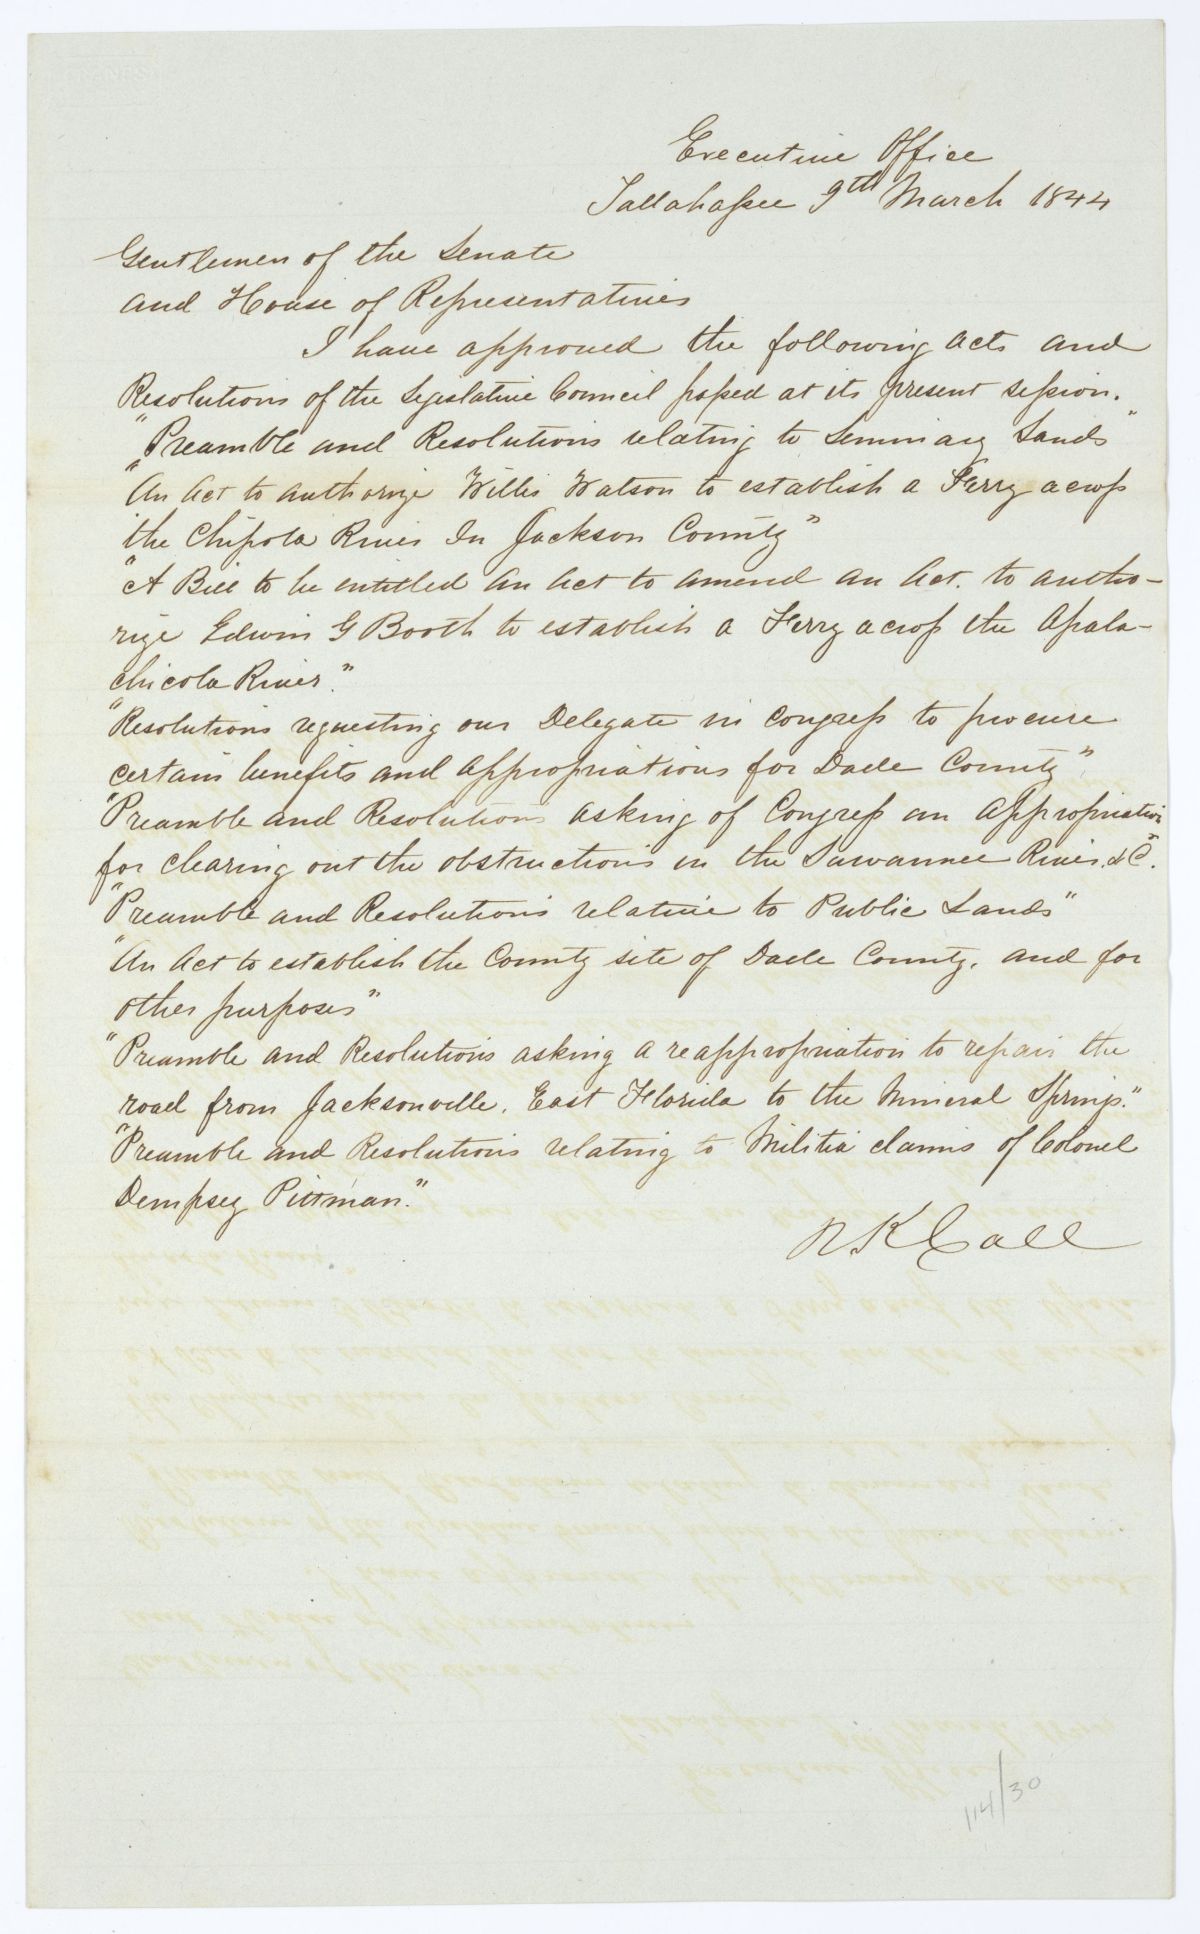 Executive Office
Tallahassee 9th March 1844
Gentlemen of the Senate
and House of Representatives
I have approved the following acts and
Resolutions of the Legislative Council passed at its present session.
"Preamble and Resolutions relating to Seminary Lands"
"An Act to authorize Willis Watson to establish a Ferry across
the Chipola River In Jackson County"
"A Bill to be entitled An Act to amend an Act. to autho-
rize Edwin G Booth to establish a Ferry across the Apala-
chicola River."
"Resolutions requesting our Delegate in Congress to procure
certain benefits and appropriations for Dade County"
"Preamble and Resolutions asking of Congress an appropriation
for clearing out the obstructions in the Suwannee River, &C".
"Preamble and Resolutions relative to Public Lands"
"An Act to establish the County site of Dade County, and for
other purposes"
"Preamble and Resolutions asking a reappropriation to repair the
road from Jacksonville, East Florida to the Mineral Springs."
"Preamble and Resolutions relating to Militia claims of Colonel
Dempsey Pittman."
R K Call
114/30